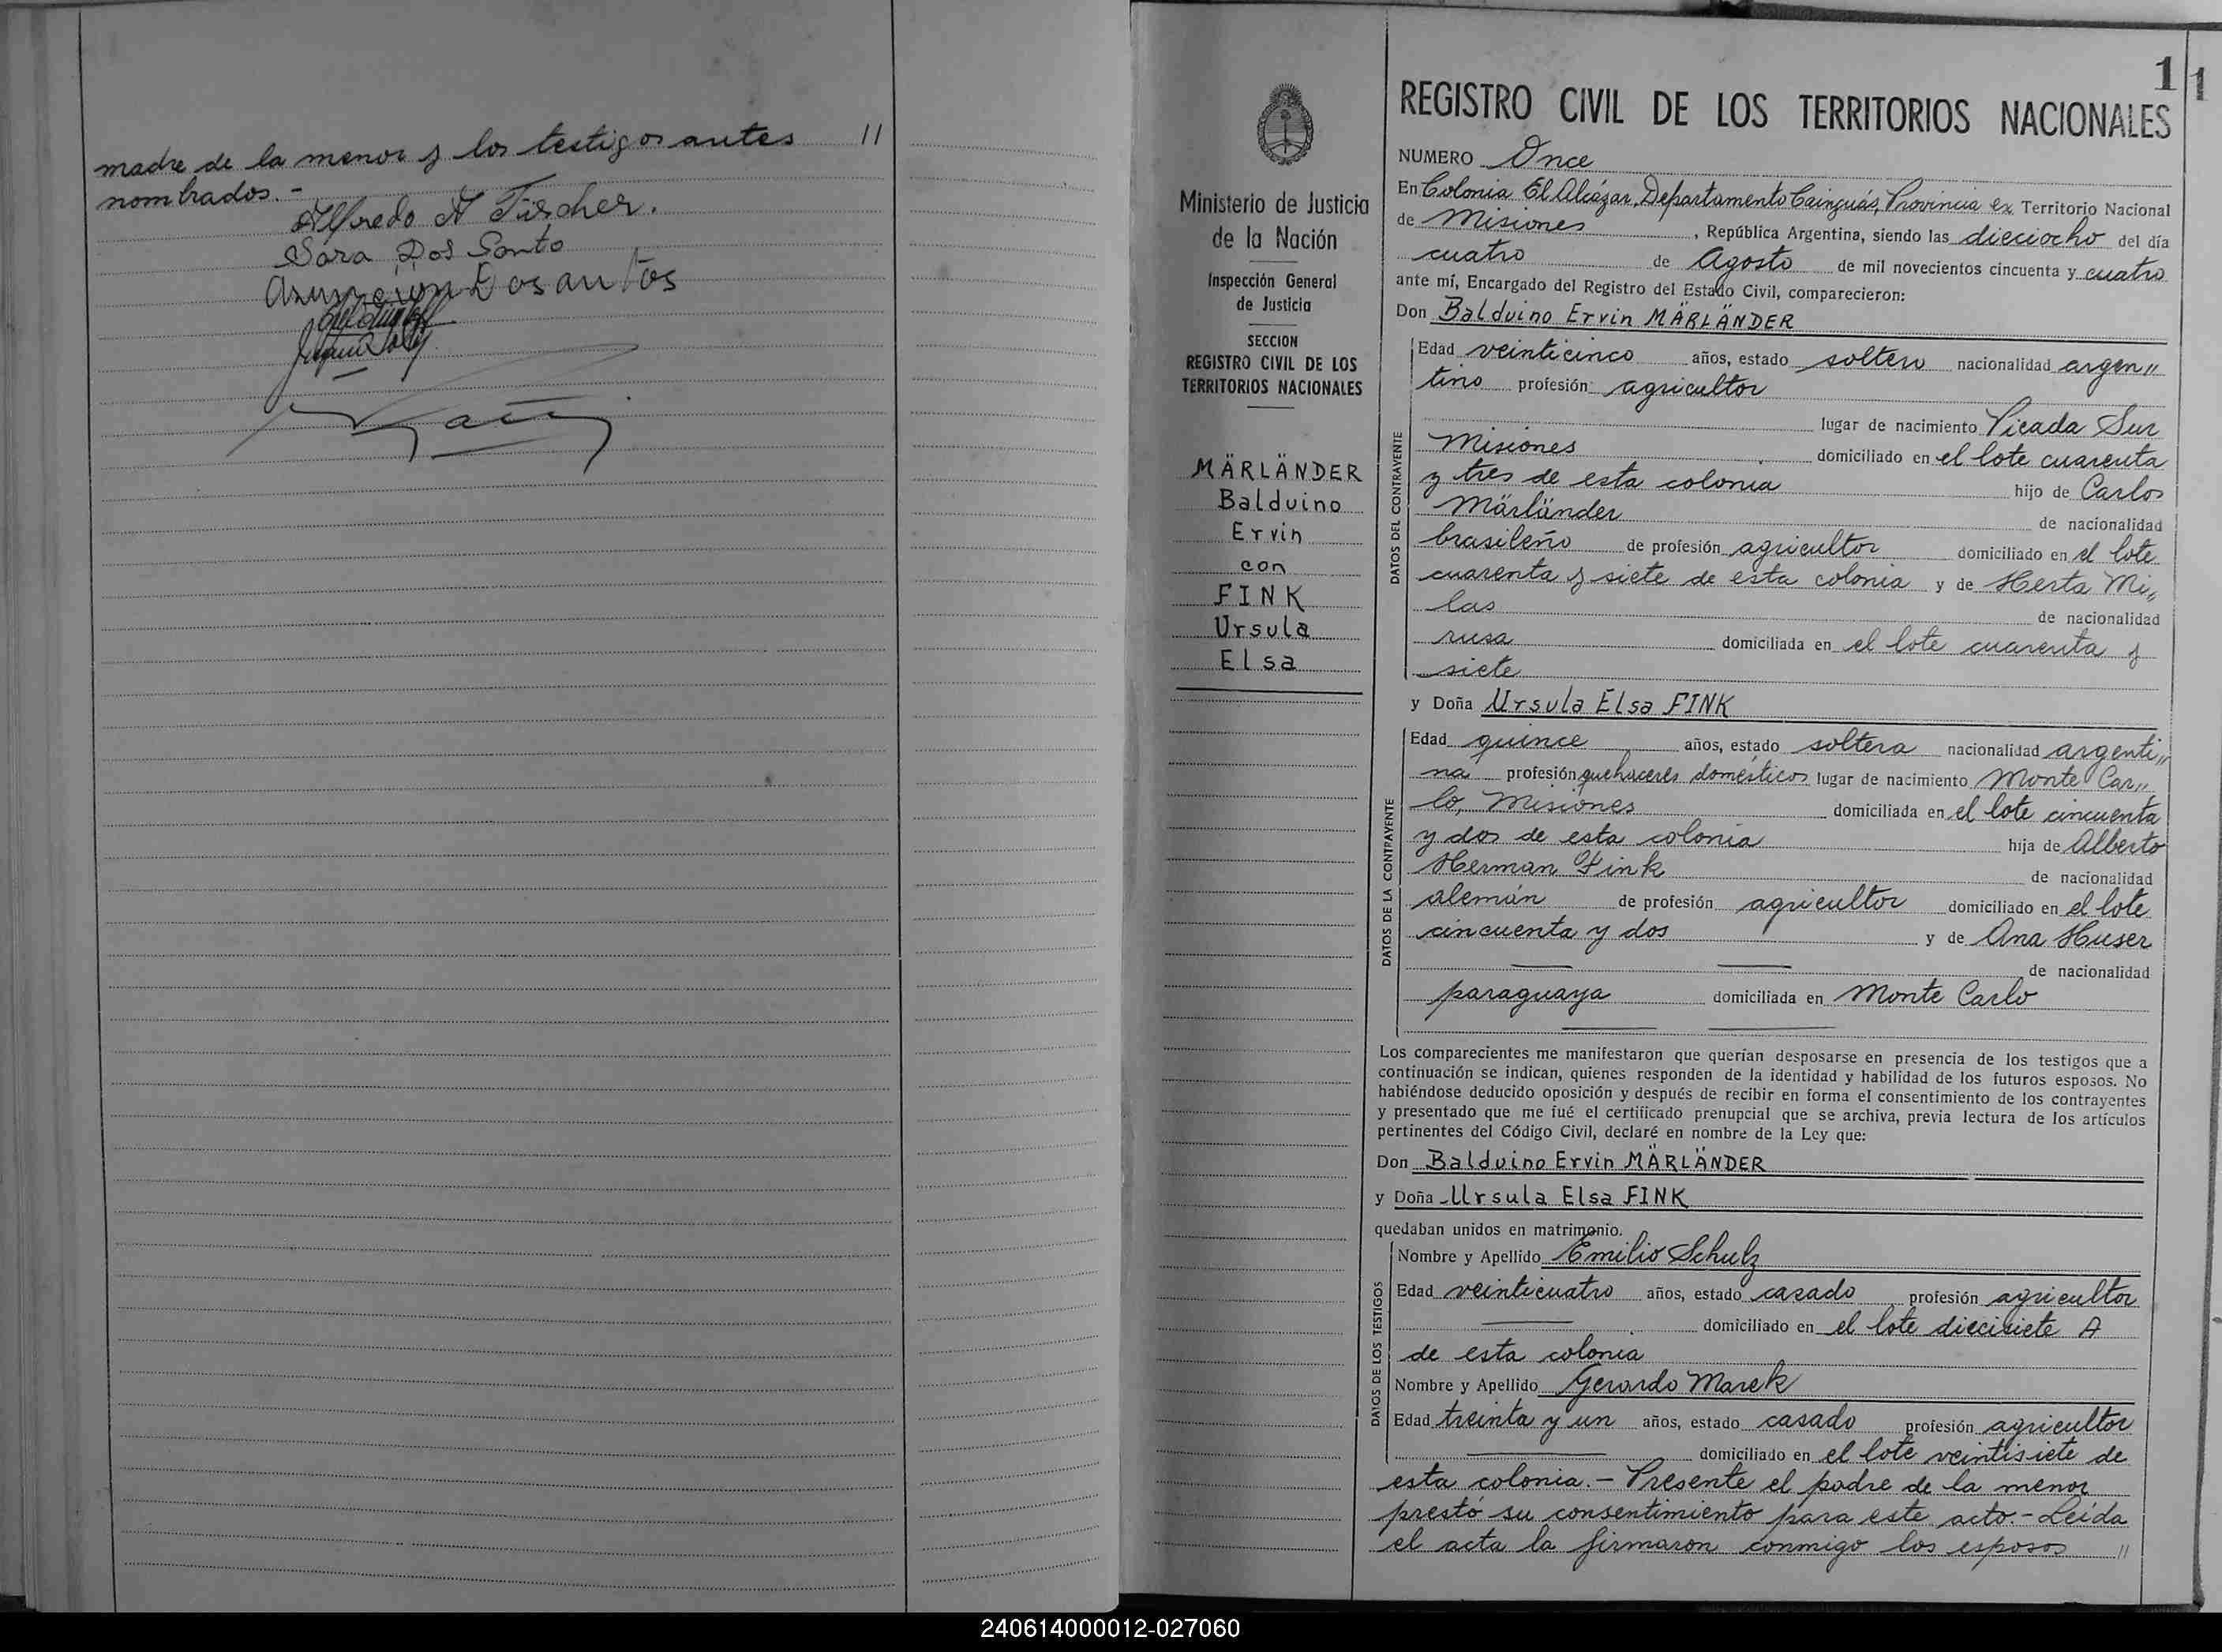 madre de la menor y los testigos antes //
nombrados.-
Alfredo A Fischer.
Sara Dos Santo
Asuncion Dosantos
1
1
REGISTRO CIVIL DE LOS TERRITORIOS NACIONALES
NUMERO Once
En Colonia El Alcázar, Departamento Cainguás, Provincia ex Territorio Nacional
de Misiones, República Argentina, siendo las dieciocho del día
cuatro de Agosto de mil novecientos cincuenta y cuatro
ante mí, Encargado del Registro del Estado Civil, comparecieron:
Don Balduino Ervin MÄRLÄNDER
Edad veinticinco años, estado soltero nacionalidad argen//
tino profesión agricultor
lugar de nacimiento Picada Sur
Misiones domiciliado en el lote cuarenta
y tres de esta colonia hijo de Carlos
Märländer de nacionalidad
brasileño de profesión agricultor domiciliado en el lote
cuarenta y siete de esta colonia y de Herta Mi//
las de nacionalidad
rusa domiciliada en el lote cuarenta y
siete
y Doña Ursula Elsa FINK
Edad quince años, estado soltera nacionalidad argenti//
na profesión quehaceres domésticos lugar de nacimiento Monte Car//
lo, Misiones domiciliada en el lote cincuenta
y dos de esta colonia hija de Alberto
Herman Fink de nacionalidad
alemán de profesión agricultor domiciliado en el lote
cincuenta y dos y de Ana Huser
de nacionalidad
paraguaya domiciliada en Monte Carlo
Los comparecientes me manifestaron que querían desposarse en presencia de los testigos que a
continuación se indican, quienes responden de la identidad y habilidad de los futuros esposos. No
habiéndose deducido oposición y después de recibir en forma el consentimiento de los contrayentes
y presentado que me fué el certificado prenupcial que se archiva, previa lectura de los artículos
pertinentes del Código Civil, declaré en nombre de la Ley que:
Don Balduino Ervin MÄRLÄNDER
y Doña Ursula Elsa FINK
quedaban unidos en matrimonio.
Nombre y Apellido Emilio Schulz
Edad veinticuatro años, estado casado profesión agricultor
domiciliado en el lote diecisiete A
de esta colonia
Nombre y Apellido Gerardo Marek
Edad treinta y un años, estado casado profesión agricultor
domiciliado en el lote veintisiete de
esta colonia.- Presente el padre de la menor
prestó su consentimiento para este acto.- Leída
el acta la firmaron conmigo los esposos //
Ministerio de Justicia
de la Nación
Inspección General
de Justicia
SECCION
REGISTRO CIVIL DE LOS
TERRITORIOS NACIONALES
MÄRLÄNDER
Balduino
Ervin
con
FINK
Ursula
Elsa
DATOS DEL CONTRAYENTE
DATOS DE LA CONTRAYENTE
DATOS DE LOS TESTIGOS
240614000012-027060